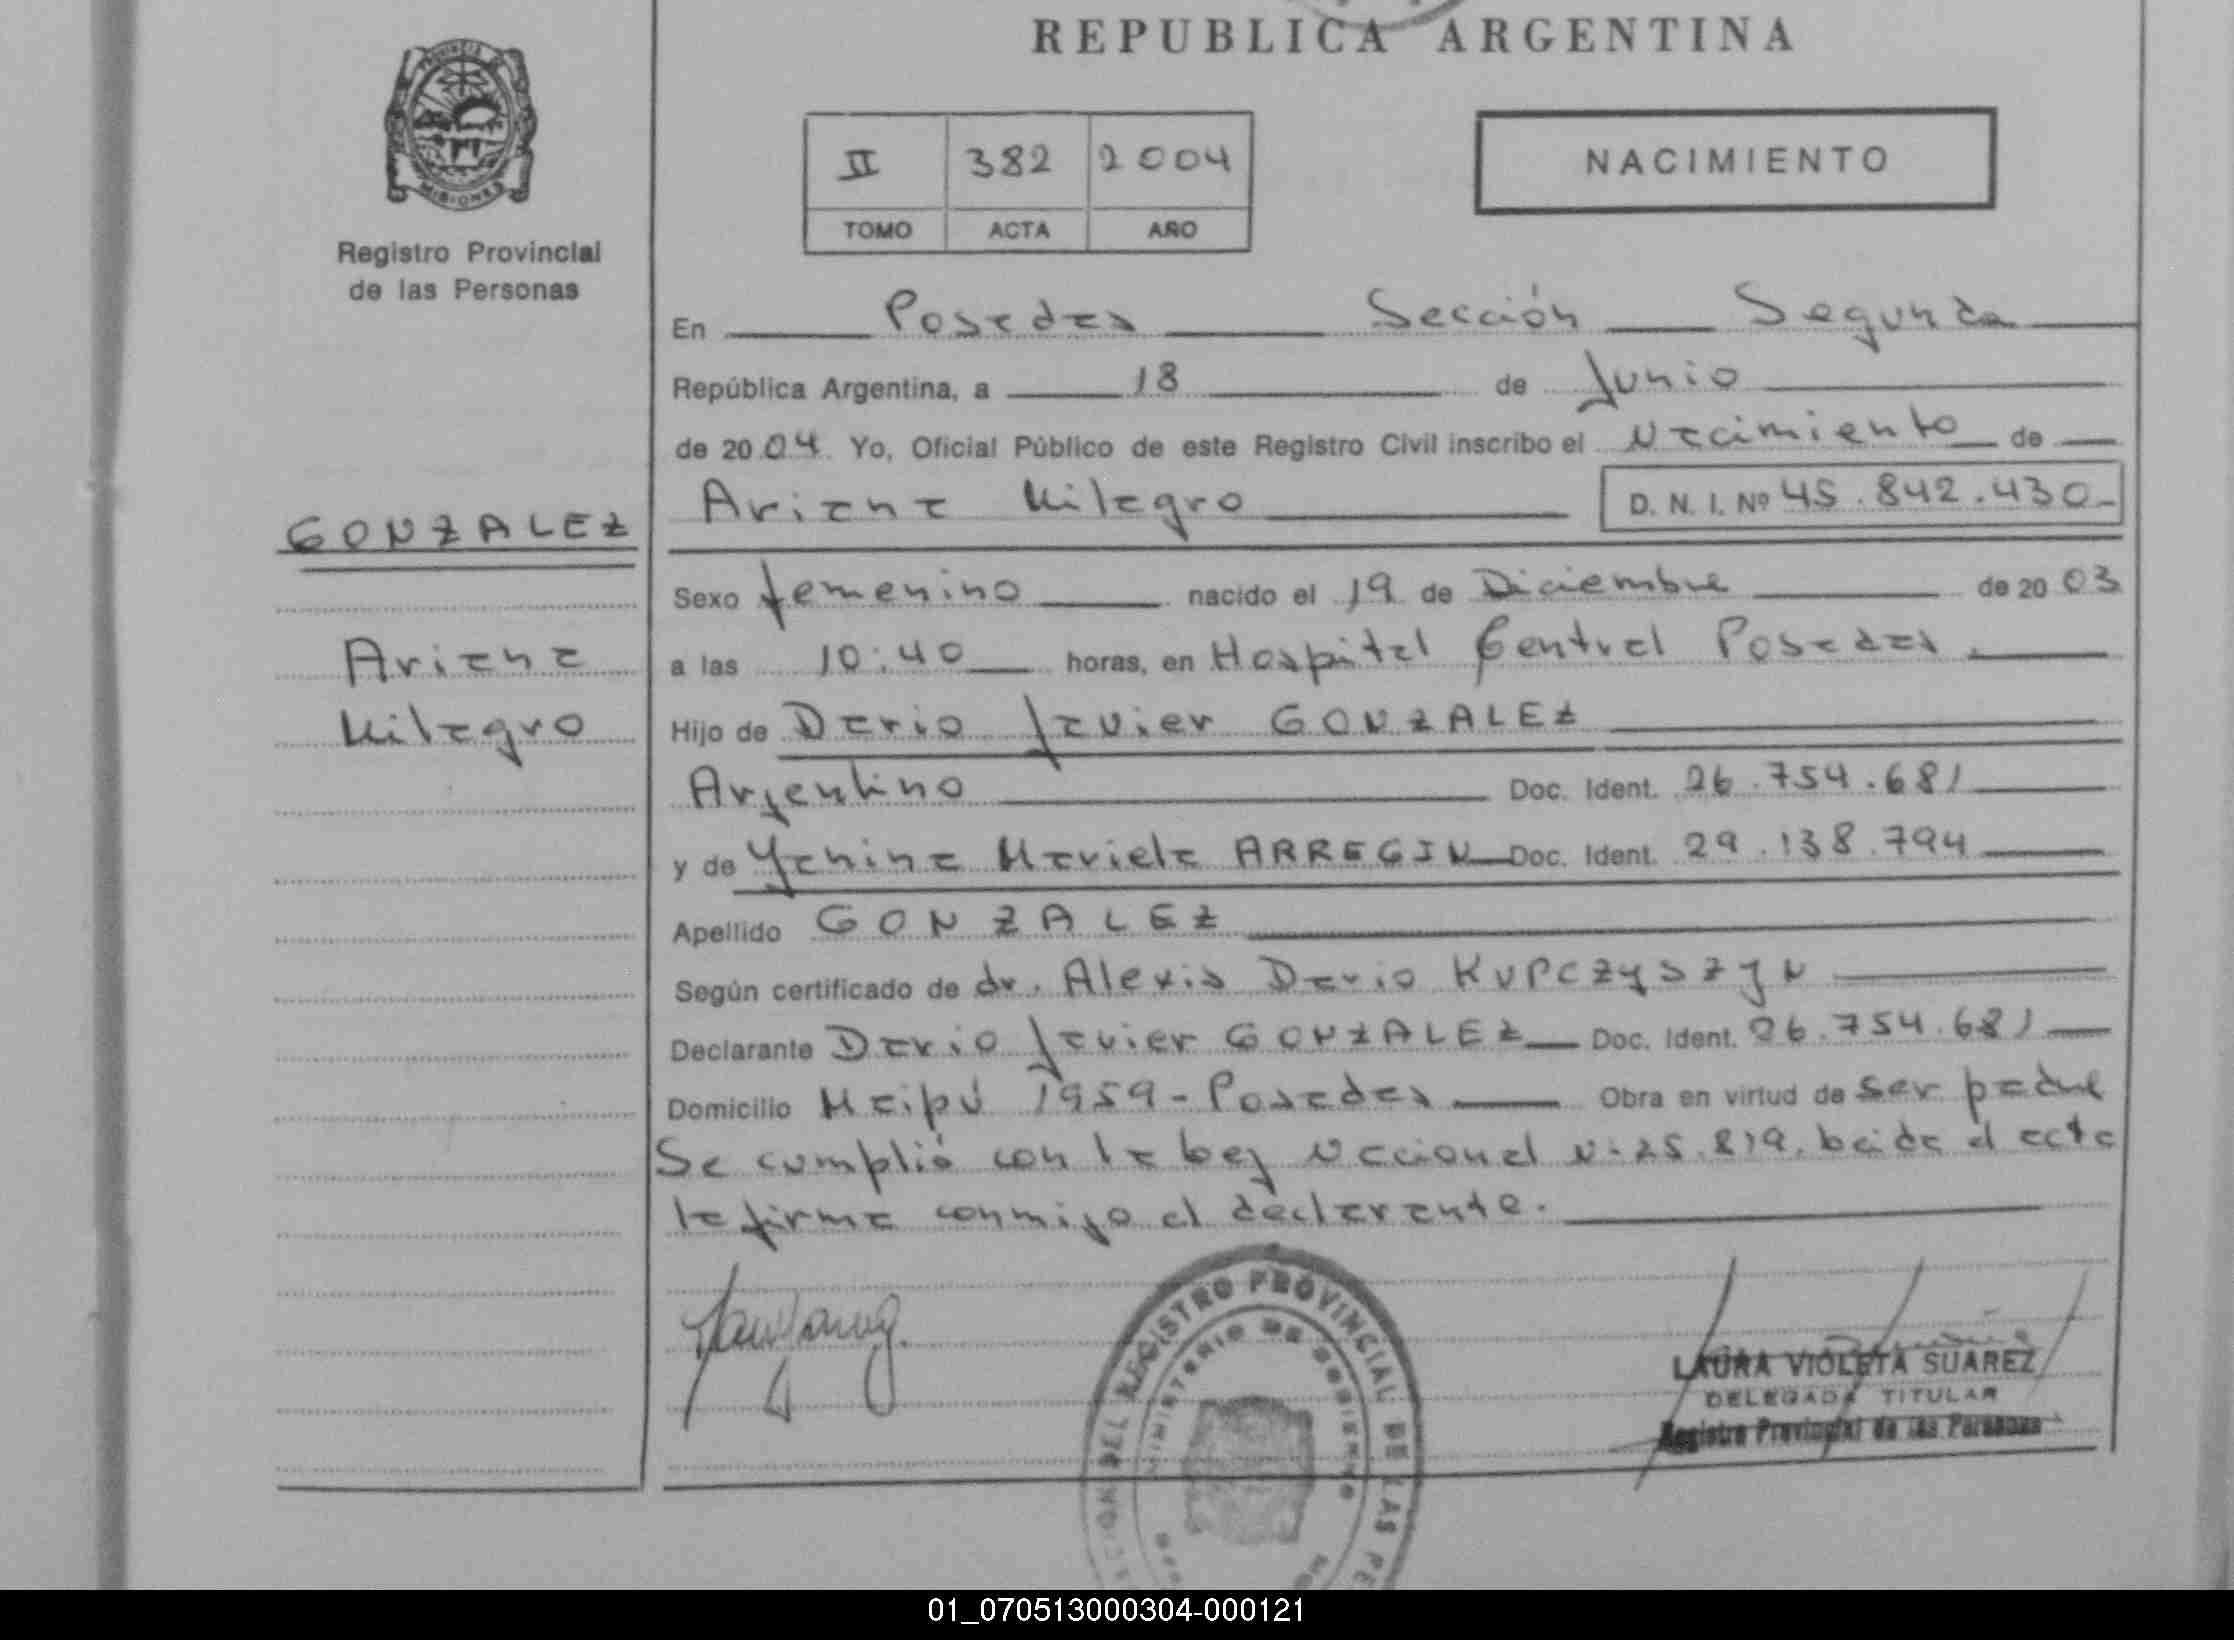 REPUBLICA ARGENTINA
PROVINCIA DE
MISIONES
Registro Provincial
de las Personas
II 382 2004
TOMO ACTA AÑO
NACIMIENTO
En Posadas Sección Segunda
República Argentina, a 18 de Junio
de 2004. Yo, Oficial Público de este Registro Civil inscribo el Nacimiento de
Ariana Milagro D. N. I. Nº 45.842.430-
GONZALEZ
Ariana
Milagro
Sexo femenino nacido el 19 de Diciembre de 20 03
a las 10:40 horas, en Hospital Central Posadas.
Hijo de Dario Javier GONZALEZ
Argentino Doc. Ident. 26.754.681
y de Yanina Mariela ARREGIN Doc. Ident. 29.138.794
Apellido GONZALEZ
Según certificado de dr. Alexis Dario KUPCZYSZYN
Declarante Dario Javier GONZALEZ Doc. Ident. 26.754.681
Domicilio Maipú 1959 - Posadas Obra en virtud de ser padre
Se cumplió con la Ley Nacional N: 25.819. Leida el acta
la firma conmigo el declarante.
DEL REGISTRO PROVINCIAL DE LAS
MINISTERIO DE GOBIERNO
LAURA VIOLETA SUAREZ
DELEGADA TITULAR
Registro Provincial de las Personas
01_070513000304-000121